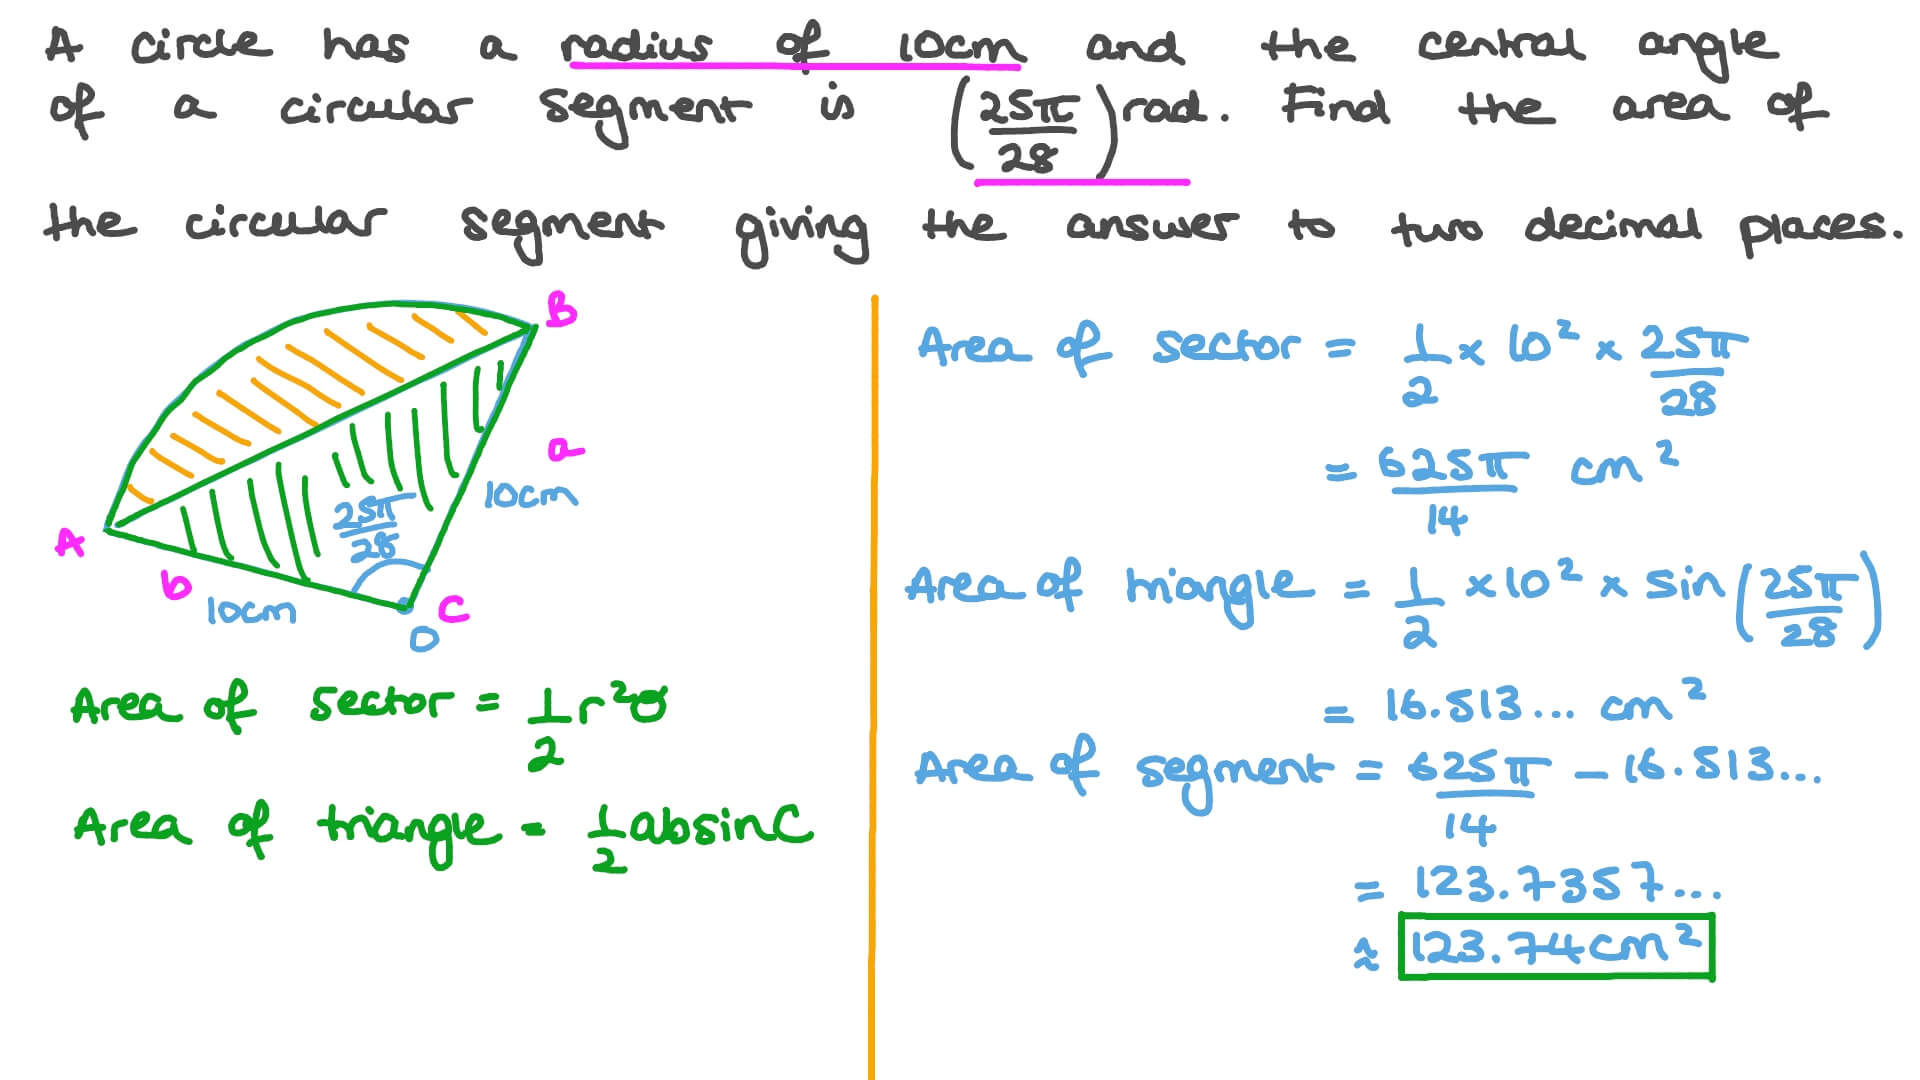 A circle has a radius of 10cm and the central angle
of a circular segment is (25π/28) rad. Find the area of
the circular segment giving the answer to two decimal places.
B
a
10cm
25π/28
A
b
10cm
C
O
Area of sector = 1/2 r²θ
Area of triangle = 1/2 absinC
Area of sector = 1/2 × 10² × 25π/28
= 625π/14 cm²
Area of triangle = 1/2 × 10² × sin(25π/28)
= 16.513... cm²
Area of segment = 625π/14 − 16.513...
= 123.7357...
≈ 123.74cm²